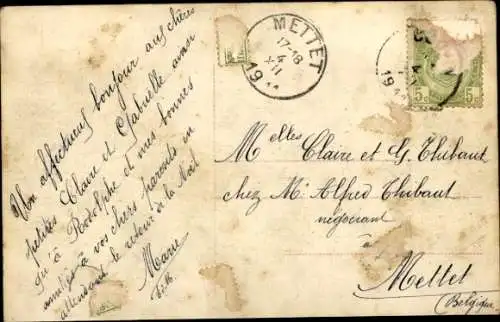 Un affectueux bonjour aux chères
petites Claire et Gabrielle ainsi
qu'à Rodolphe et mes bonnes
amitiés à vos chers parents en
attendant le retour de la Noël
Marie
METTET
17-18
4
XII
19
4
19
5c 5c
Melles Claire et G. Thibaut
chez Mr Alfred Thibaut
négociant
à
Mettet
(Belgique)